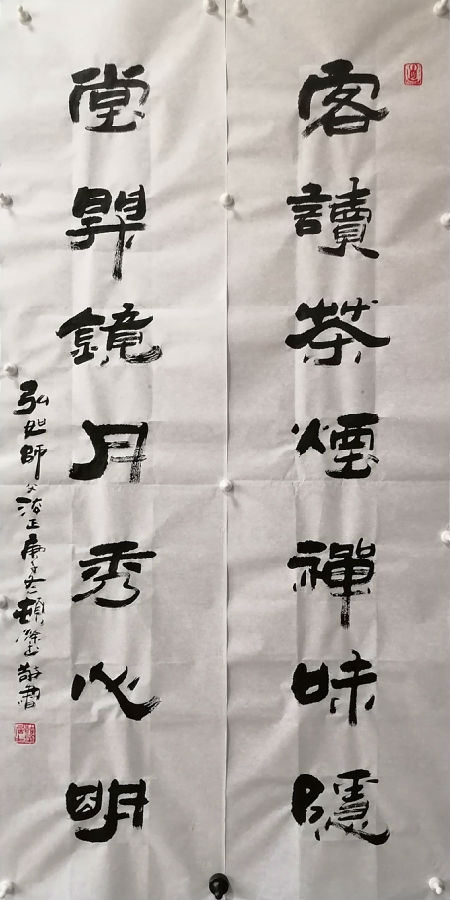 客讀茶煙禪味隱
堂昇鏡月秀心明
弘旭師父法正庚子冬頓深書